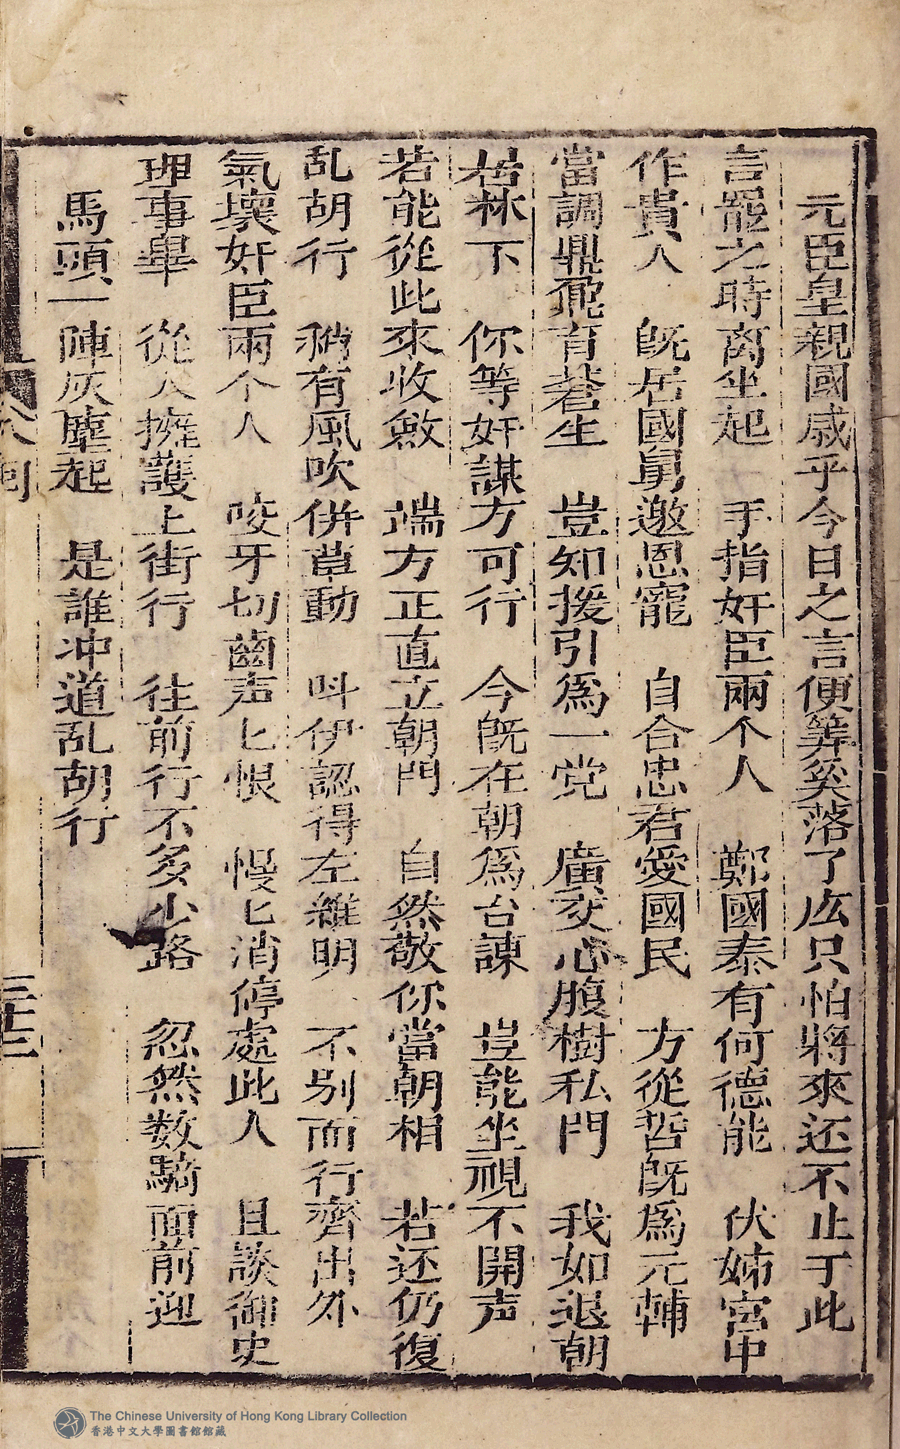 元臣皇親國戚乎今日之言便筭奚落了庅只怕將來还不止于此
言罷之時离坐起　手指奸臣兩个人　鄭國泰有何德能　伏姊宮中
作貴人　既居國舅邀恩寵　自合忠君愛國民　方從哲既爲元輔
當調鼎鼐育蒼生　豈知援引爲一党　廣交心腹樹私門　我如退朝
居林下　你等奸謀方可行　今既在朝爲台諫　豈能坐視不開声
若能從此來收斂　端方正直立朝門　自然敬你當朝相　若还仍復
乱胡行　稍有風吹併草動　呌伊認得左維明　不别而行齊出外
氣壞奸臣兩个人　咬牙切齒声匕恨　慢匕消停處此人　且談御史
理事畢　從人擁護上街行　往前行不多少路　忽然数騎面前迎
馬頭一陣灰塵起　是誰冲道乱胡行
三十三
The Chinese University of Hong Kong Library Collection
香港中文大學圖書館館藏